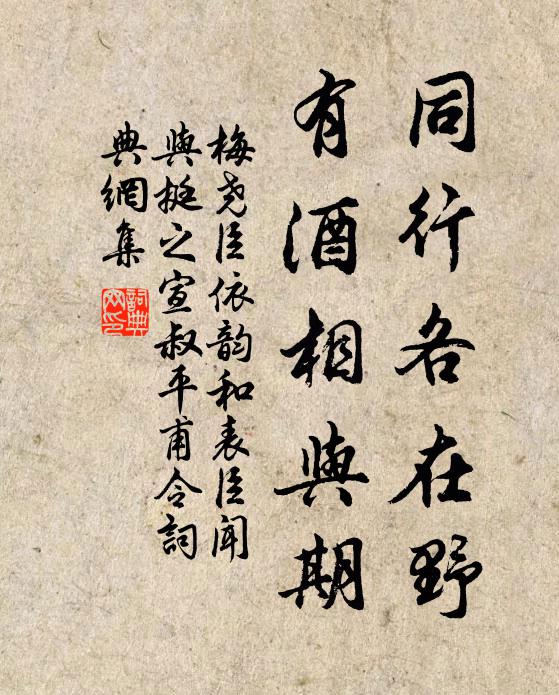 同行各在野
有酒相與期
梅堯臣依韵和表臣聞
與挺之宣叔平甫令詞
典網集
詞典
网印